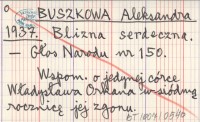 BUSZKOWA Aleksandra
1937. Blizna serdeczna.
— Głos Narodu nr 150.
Wspom. o jedynej córce
Władysława Orkana w siódmą
rocznicę jej zgonu.